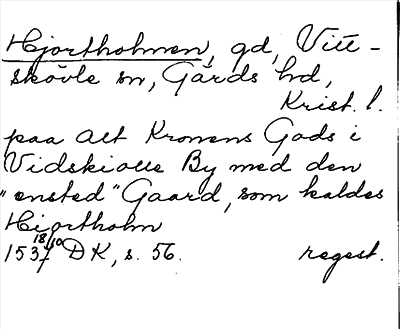 Hjortholmen, gd, Vitt-
skövle sn, Gärds hd,
Krist. l.
paa alt Kronens Gods i
Vidskiolle By med den
"ensted" Gaard, som kaldes
Hiortholm
1537 18/10 DK, s. 56. regest.